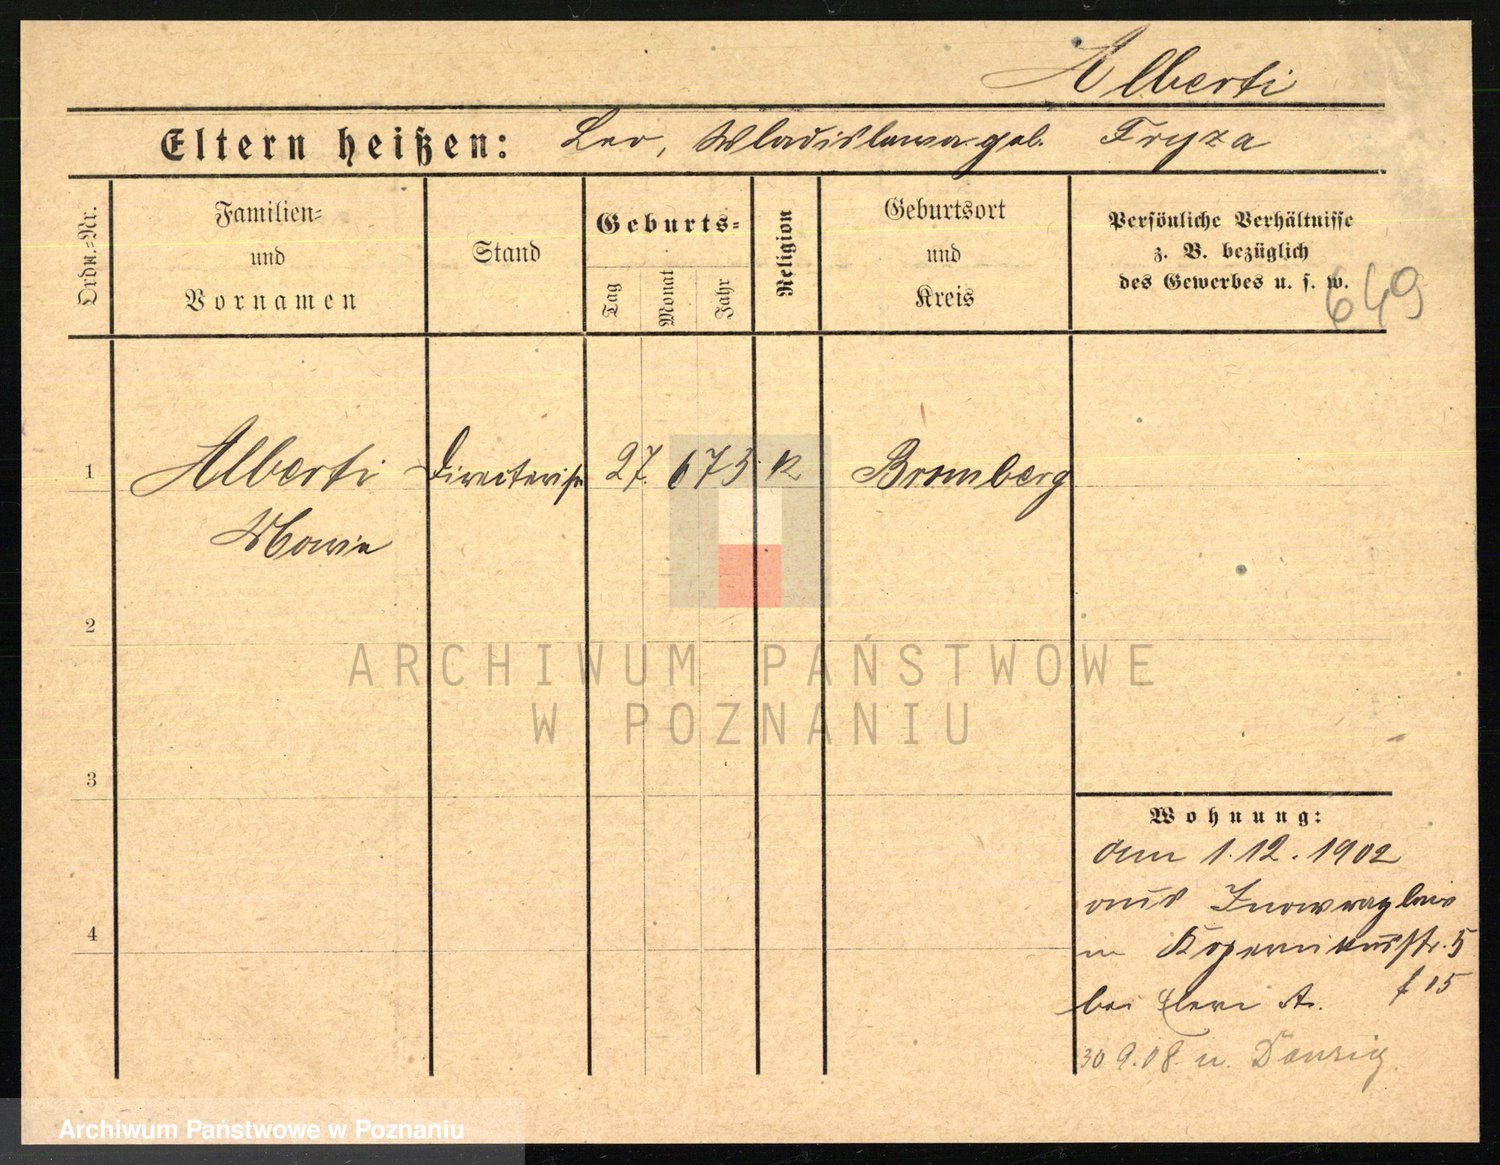 Alberti
Eltern heißen: Leo, Wladislawa geb. Fryza
Ordn.=Nr.
Familien=
und
Vornamen
Stand
Geburts=
Tag
Monat
Jahr
Religion
Geburtsort
und
Kreis
Persönliche Verhältnisse
z. B. bezüglich
des Gewerbes u. s. w.
649
1
Alberti
Maria
Directrice
27. 6 75. K
Bromberg
2
3
4
ARCHIWUM PAŃSTWOWE
W POZNANIU
Wohnung:
am 1.12.1902
aus Inowrazlaw
n Kopernikusstr. 5
bei A.
f 15
30 9.08. n. Danzig
Archiwum Państwowe w Poznaniu